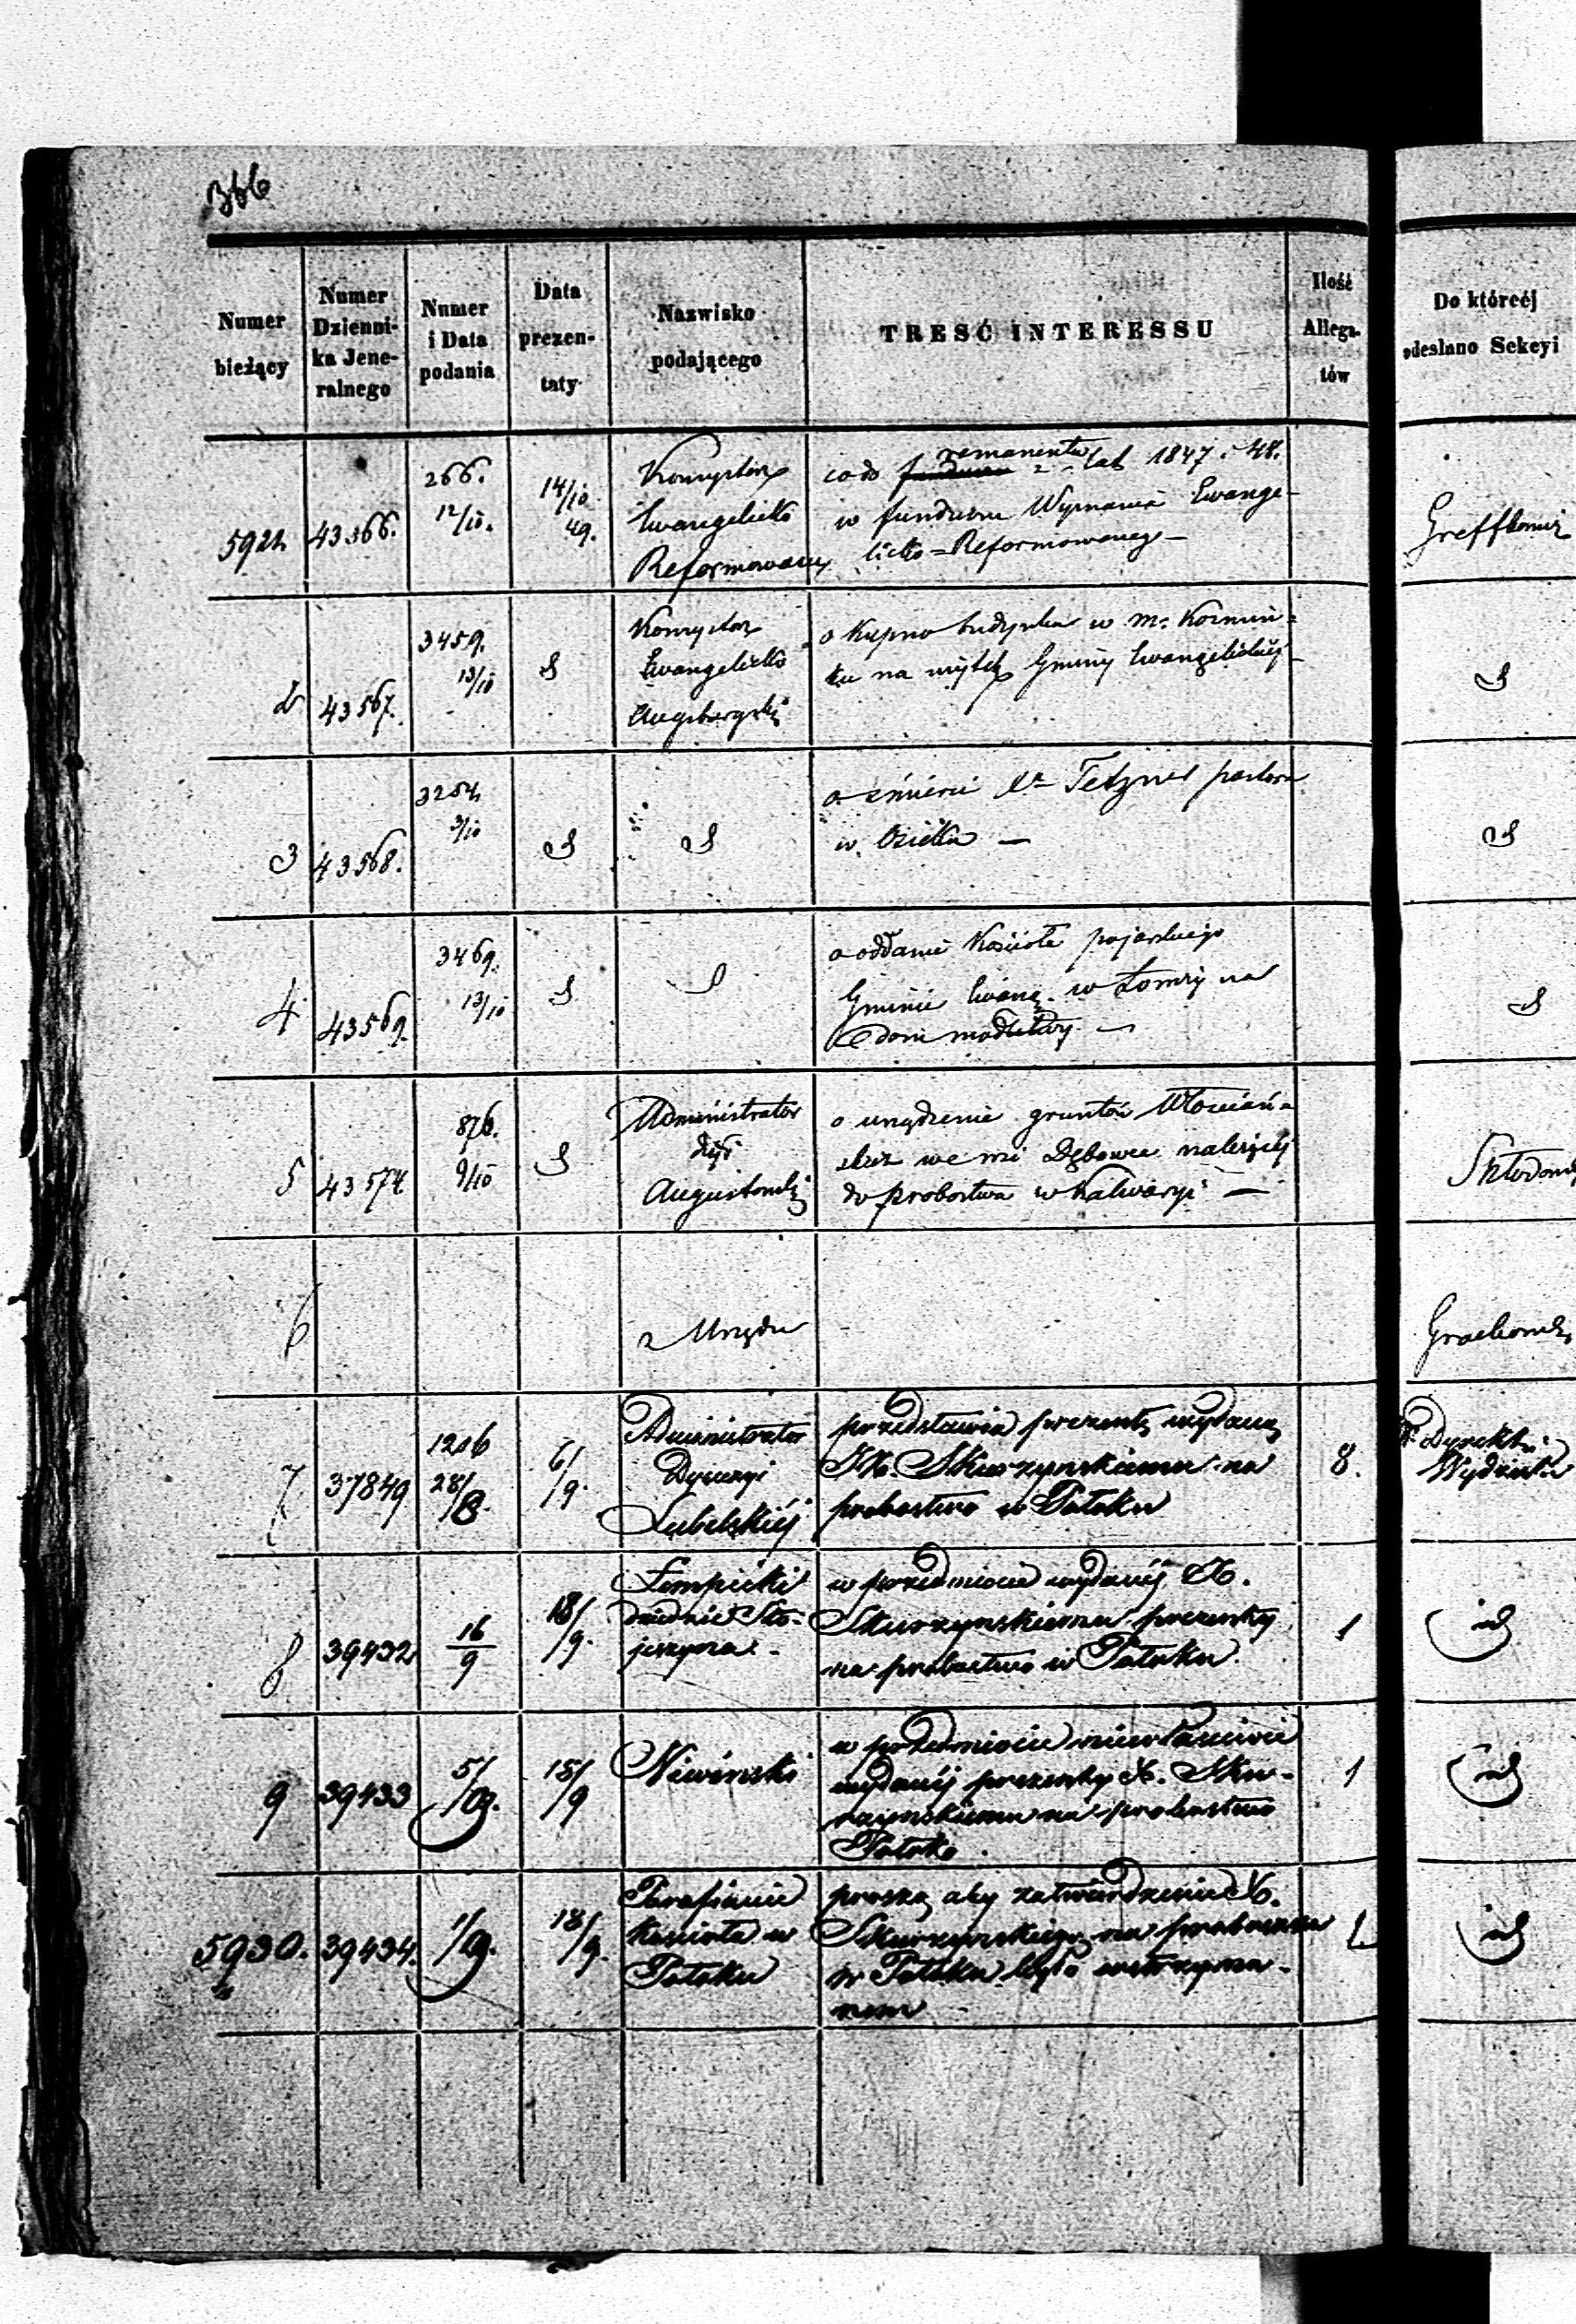 366
Numer bieżący
Numer Dzienni-ka Jene-ralnego
Numer i Data podania
Data prezen-taty
Nazwisko podającego
TRESĆ INTERESSU
Ilość Allega-tów
Do któréj odesłano Sekcyi
5921 43566. 266. 12/10. 14/10 49. Konsystorz Ewangelicko Reformowany
co do funduszu remanentu z lat 1847 i 48.
w funduszu Wyznania Ewange-
licko=Reformowanego —
2 43567. 3459. 13/10 Konsystorz Ewangelicko Augsburgski
o kupno budynku w m. Koźmin=
ku na użytek Gminy Ewangelickiej
3 43568. 3/10
o śmierci Xa Tetzner pastora
w Ozietka —
4 43569. 3469. 13/10
o oddanie Kościoła pojarskiego
Gminie Ewang. w Łomży na
dom modlitwy —
5 43574 876. 9/10 Administrator Dyi Augustowskiej
o urządzenie gruntów Włościań-
skich we wsi Dębowce należącej
do probostwa w Kalwaryi —
6 z Urzędu
7 37849 1206 28/8. 6/9. Administrator Dyecezyi Lubelskiéj
przedstawia prezentę wydaną
JX. Skurzynskiemu na
probostwo w Potoku
8. Dyrektor Wydziału
8 39432 16/9 18/9. Łempicki dziedzic Sto-jeszyna -
w przedmiocie wydanéj X.
Skurzynskiemu prezenty
na probostwo w Potoku.
1 id
9 39433 5/9. 18/9 Niwinski
w przedmiocie niewłaściwie
wydanéj prezenty X. Sku-
rzynskiemu na probostwo
Potok .
1 id
5930. 39434. 1/9. 18/9. Parafianie Kościoła w Potoku
proszą aby zatwierdzenie X.
Skurzynskiego na proboszcza
w Potoku było wstrzyma-
nem
1 id